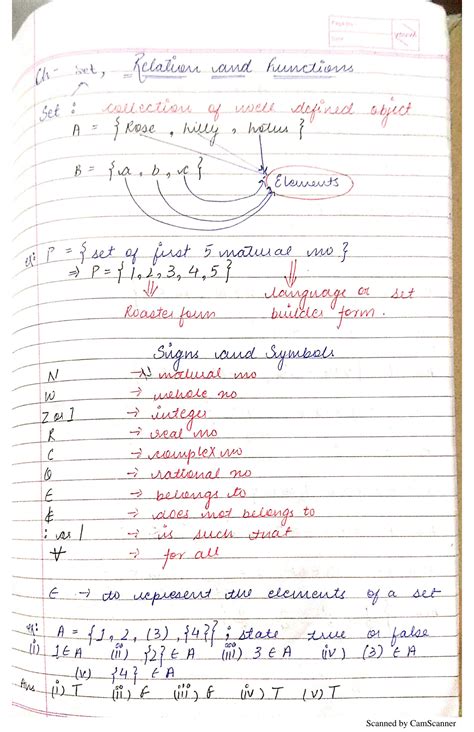 Page No.
Date
Ch- Set, Relation and Functions
Set : collection of well defined object
A = { Rose, lilly, lotus }
B = { a, b, c }
Elements
eg: P = { set of first 5 natural no }
⇒ P = { 1, 2, 3, 4, 5 }
Roaster form
language or set
builder form.
Signs and Symbols
N → natural no
W → whole no
Z or I → integer
R → real no
C → complex no
Q → rational no
∈ → belongs to
∉ → does not belongs to
: or | → is such that
∀ → for all
∈ → to represent the elements of a set
eg: A = {1, 2, (3), {4}} ; state true or false
(i) 1 ∈ A (ii) {2} ∈ A (iii) 3 ∈ A (iv) (3) ∈ A
(v) {4} ∈ A
Ans (i) T (ii) F (iii) F (iv) T (v) T
Scanned by CamScanner